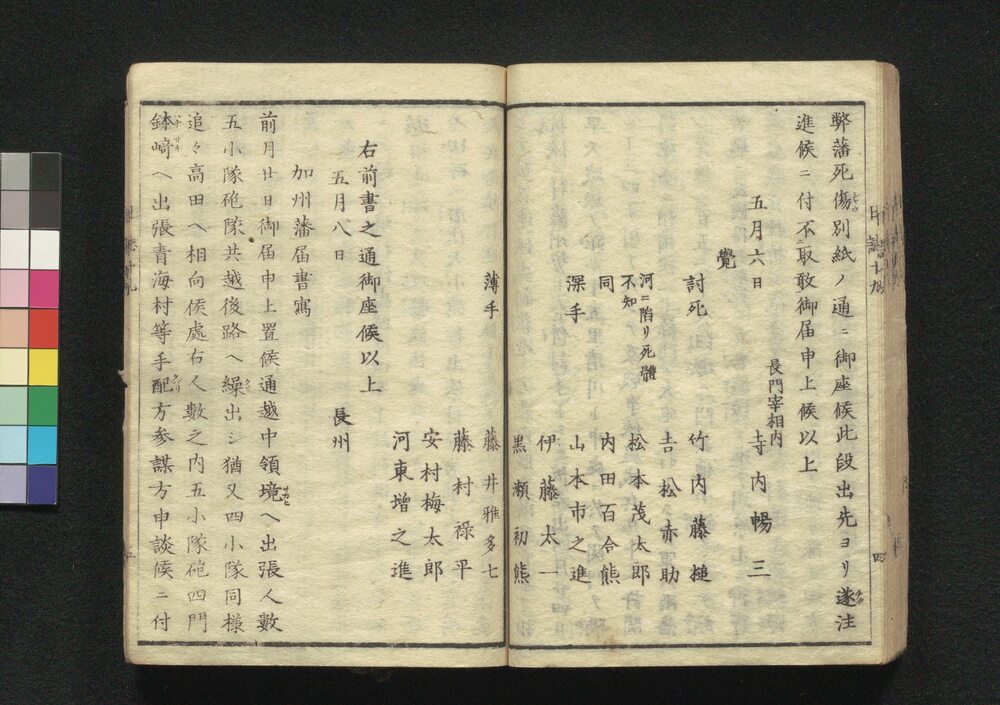 弊藩死傷別紙ノ通ニ御座候此段出先ヨリ遂注
進候ニ付不取敢御届申上候以上
長門宰相内
五月六日 寺内暢三
覺
討死 竹内藤槌
吉松赤雷助
河ニ陷リ死體不知 松本茂太郎
同 内田百合熊
深手 山本市之進
伊藤太一
黒瀬初熊
薄手 藤井雅多七
藤村禄平
安村梅太郎
河東増之進
右前書之通御座候以上
五月八日 長州
加州藩届書寫
前月廿日御届申上置候通越中領境へ出張人數
五小隊砲隊共越後路へ繰出シ猶又四小隊同様
追々高田へ相向候處右人數之内五小隊砲四門
鉢﨑へ出張青海村等手配方參謀方申談候ニ付